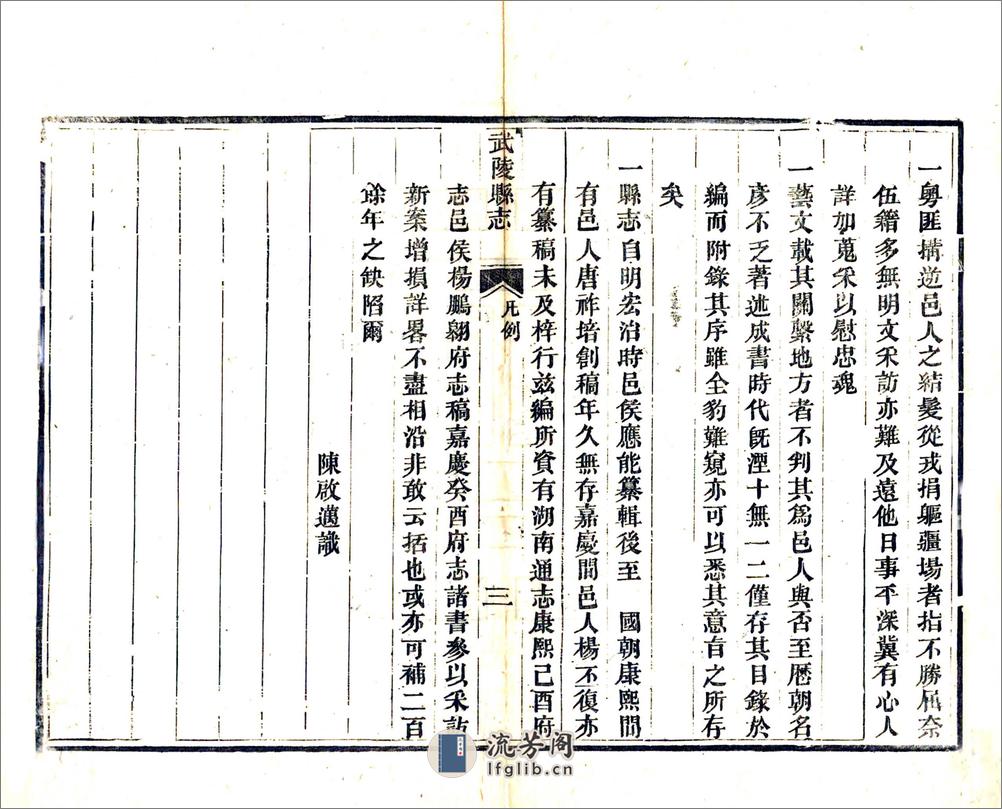 一粵匪搆逆邑人之結髮從戎捐軀疆場者指不勝屈奈
伍籍多無明文采訪亦難及遠他日事平深冀有心人
詳加蒐采以慰忠魂
一藝文載其關繫地方者不判其爲邑人與否至歷朝名
彥不乏著述成書時代旣湮十無一二僅存其目錄於
編而附錄其序雖全豹難窺亦可以悉其意旨之所存
矣
一縣志自明宏治時邑侯應能纂輯後至　國朝康熙間
有邑人唐祚培創稿年久無存嘉慶間邑人楊丕復亦
有纂稿未及梓行茲編所資有湖南通志康熙己酉府
武陵縣志
凡例
三
志邑侯楊鵬翱府志稿嘉慶癸酉府志諸書參以采訪
新案增損詳畧不盡相沿非敢云括也或亦可補二百
餘年之缺陷爾
陳啟邁識
流芳阁
lfglib.cn